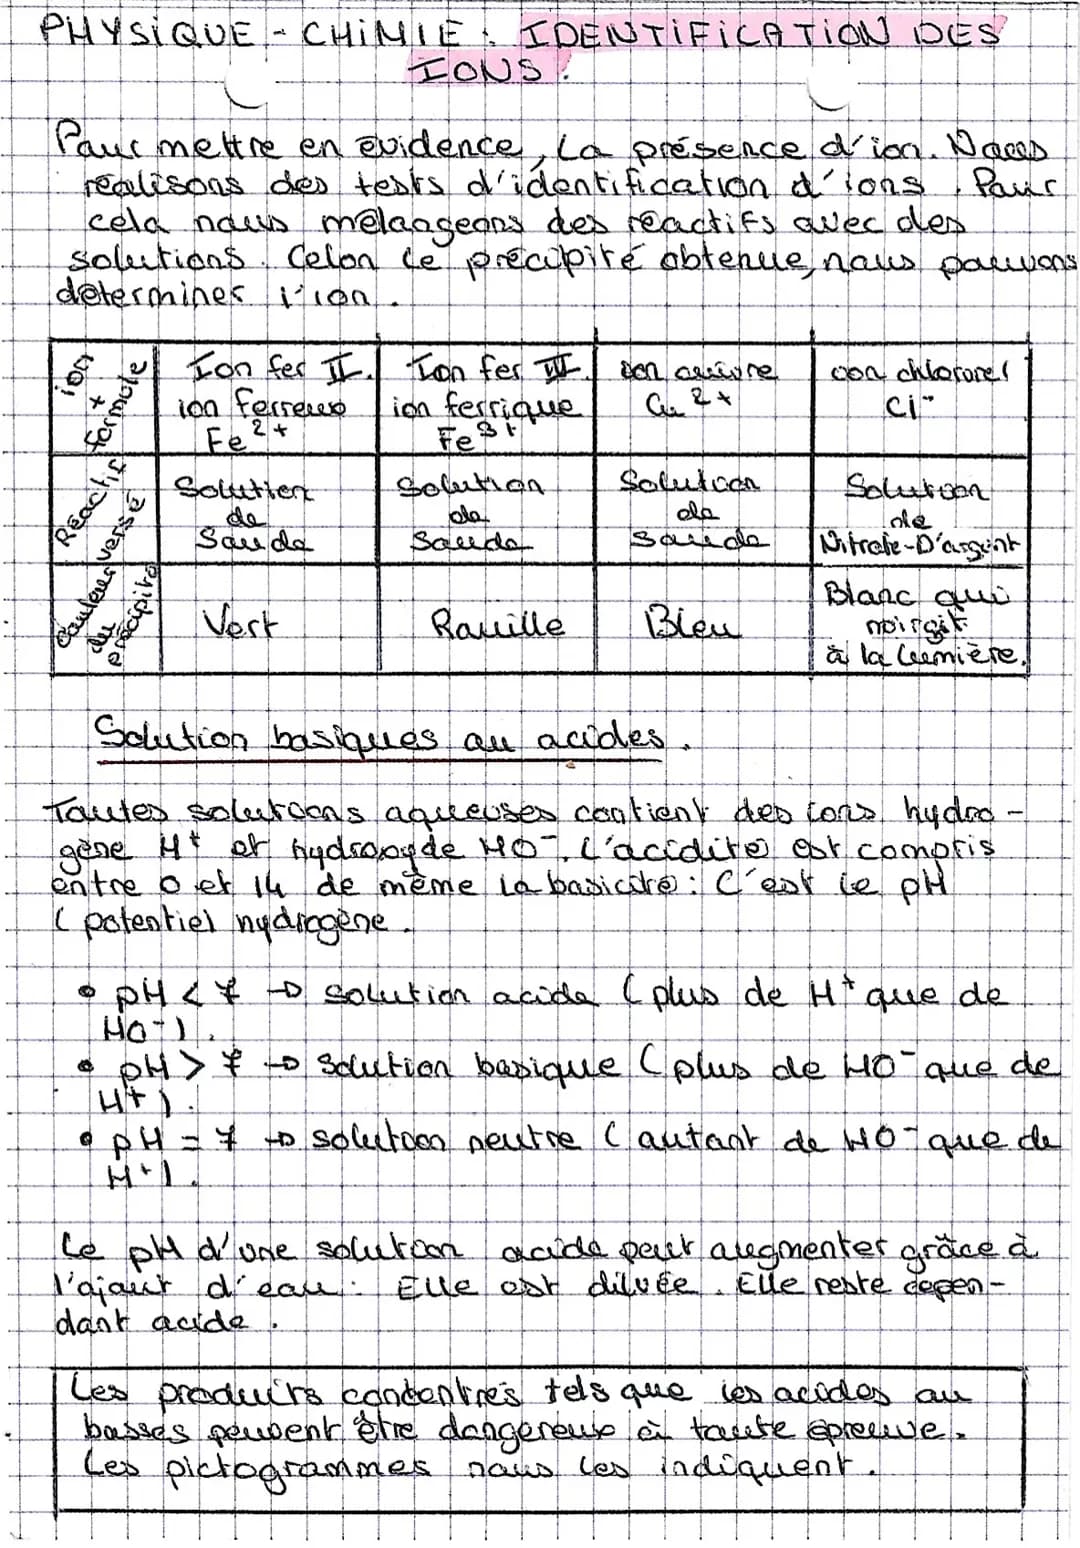 PHYSIQUE - CHIMIE : IDENTIFICATION DES
IONS.
Pour mettre en évidence, la présence d'ion. Nous
réalisons des tests d'identification d'ions. Pour
cela nous mélangeons des réactifs avec des
solutions. Celon le précipité obtenue, nous pouvons
déterminer l'ion.
ion + formule
Ion fer II.
ion ferreux
Fe2+
Ion fer III.
ion ferrique
Fe3+
ion cuivre
Cu 2+
ion chlorure
Cl-
Réactif versé
Solution
de
Soude
Solution
de
Soude
Solution
de
soude
Solution
de
Nitrate-D'argent
Couleur du précipité
Vert
Rouille
Bleu
Blanc qui
noirgit
à la lumière.
Solution basiques ou acides.
Toutes solutions aqueuses contient des ions hydro-
gène H+ et hydroxyde HO-. L'acidité est compris
entre 0 et 14 de même la basicité : C'est le pH
( potentiel hydrogène.
• pH < 7 → solution acide ( plus de H+ que de
HO-).
• pH > 7 → solution basique ( plus de HO- que de
H+).
• pH = 7 → solution neutre ( autant de HO- que de
H+).
Le pH d'une solution acide peut augmenter grâce à
l'ajout d'eau : Elle est diluée. Elle reste cepen-
dant acide.
Les produits concentrés tels que les acides ou
basses peuvent être dangereux à toute épreuve.
Les pictogrammes nous les indiquent.